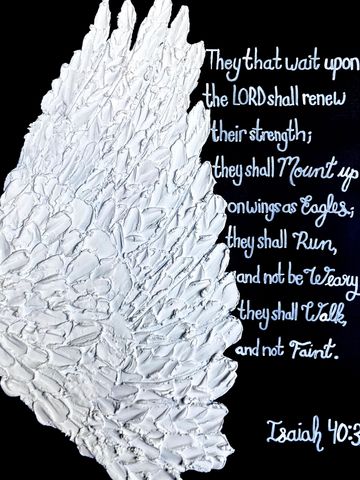 They that wait upon
the LORD shall renew
their strength;
they shall Mount up
on wings as Eagles;
they shall Run,
and not be Weary
they shall Walk,
and not Faint.
Isaiah 40:3